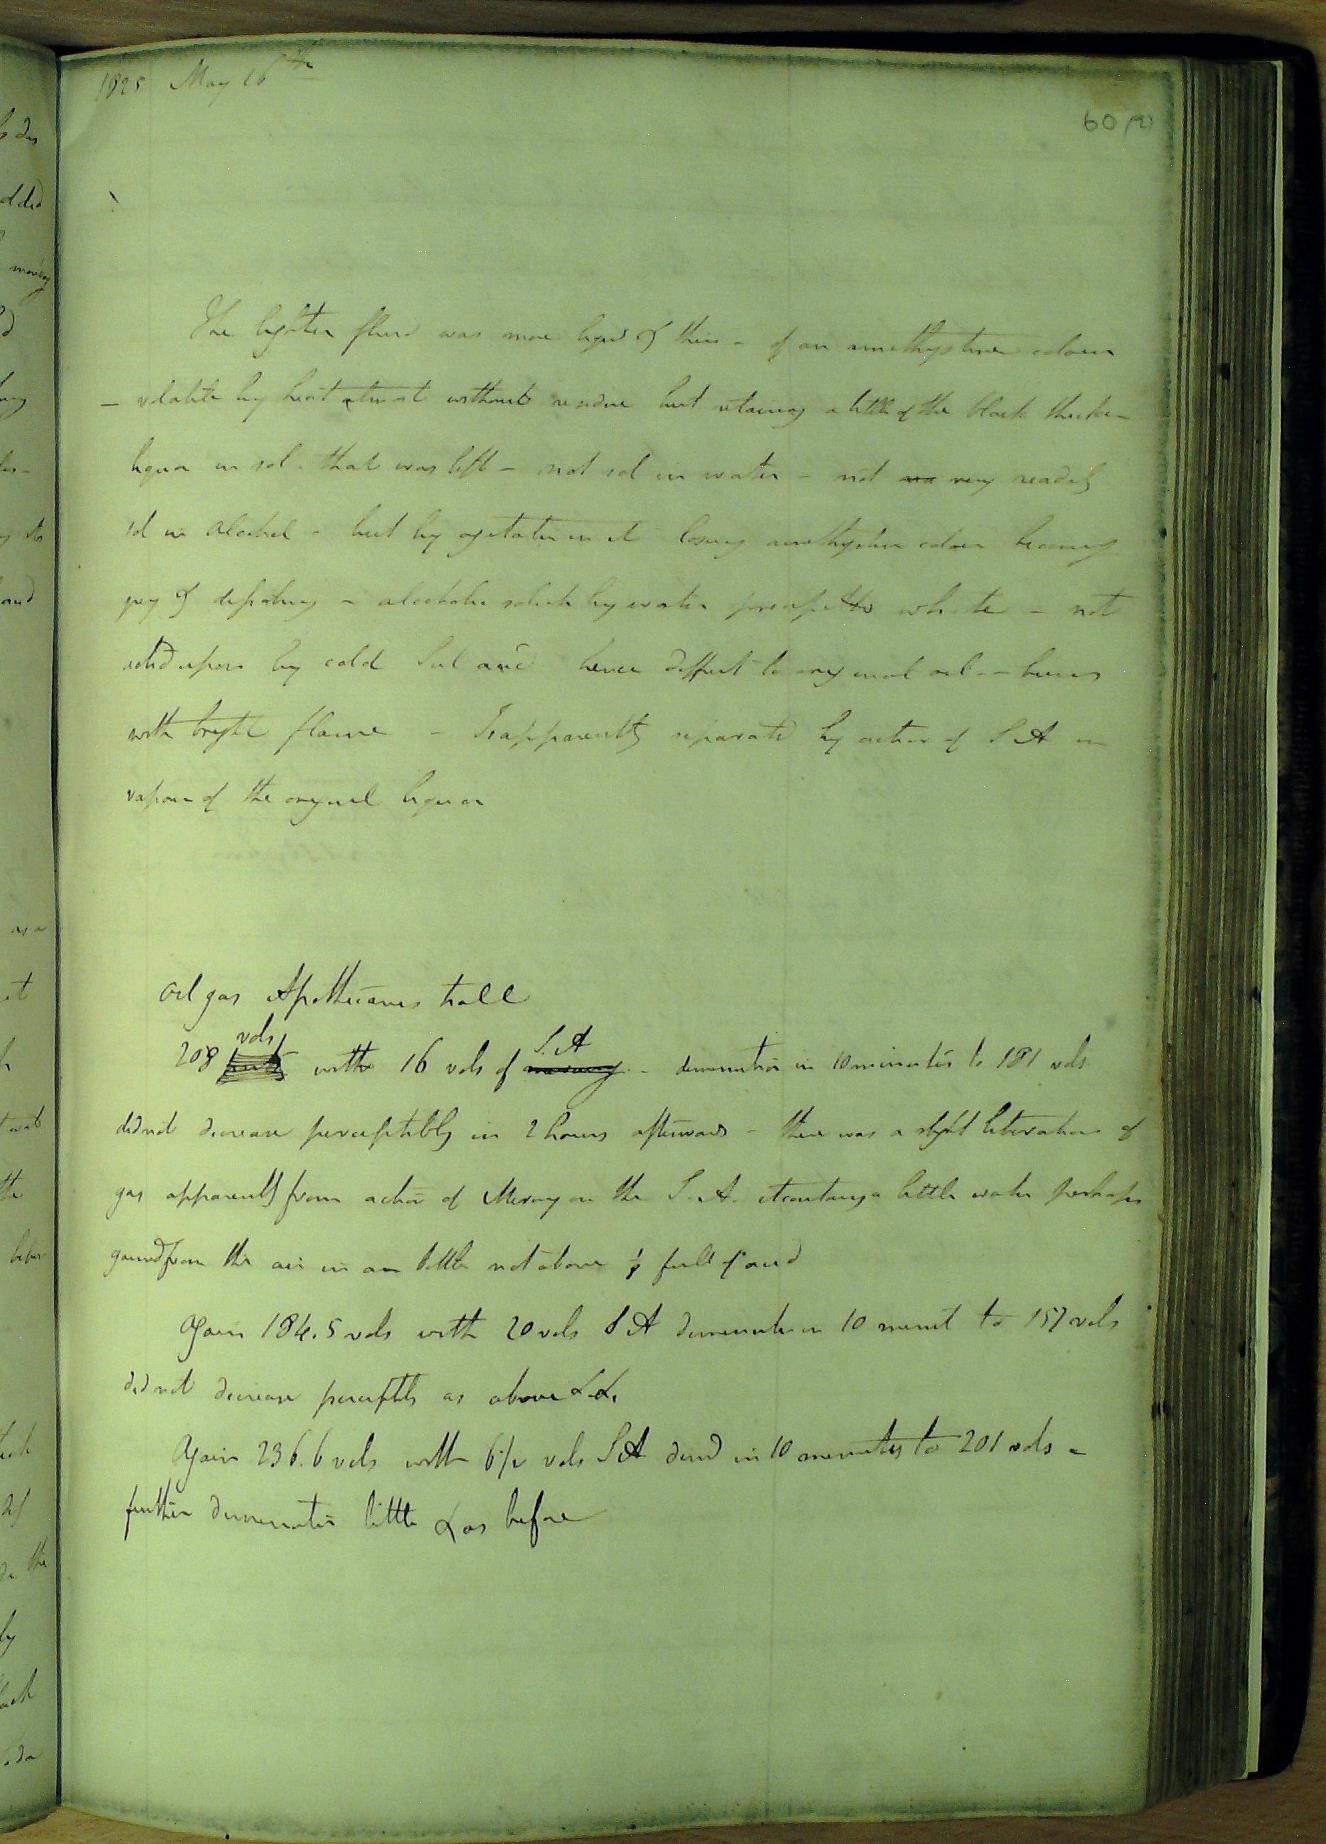 1825 May 16th
60 (2)
The lighter fluid was more liquid & thin - of an amethystine colour
- volatile by heat almost without residue but retaining a little of the black thicker
liquor in sol. that was left - not sol in water - not very readily
sol in alcohol - but by agitation in it losing amethystine colour becoming
grey & - alcoholic by water white - not
acted upon by cold Sul acid hence diffent to original oil - burns
with bright flame - Is apparently separated by action of S A on
vapour of the original liquor
Oil gas Apothecaries hall
208 vols with 16 vols of S. A - diminution in 10 minutes to 181 vols
did not decrease perceptibly in 2 hours afterwards - there was a slight liberation of
gas apparently from action of Mercury on the S. A. it containing a little water perhaps
gained from the air in a bottle not above full of acid
Again 184.5 vols with 20 vols S A diminution in 10 minut to 157 vols
did not decrease perceptibly as above &c.
Again 236.6 vols with 6 1/2 vols S A dimd in 10 minutes to 201 vols -
further diminution little & as before